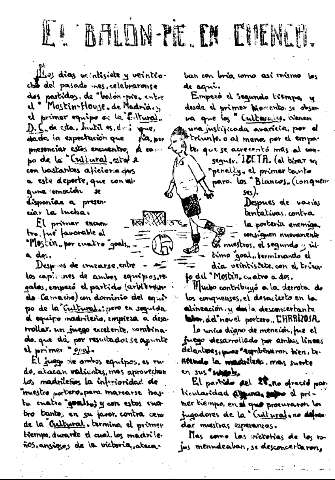 EL BALÓN-PIE EN CUENCA.
Los días veintisiete y veintio-
cho del pasado mes, celebraronse
dos partidos, de "balón-pie, entre
el "Mostin-House, de Madrid, y
el primer equipo de la Cultural,
D.C. de esta, inútil es que,
dada la expectación que por
presenciar este encuentro, el cam-
po de la "Cultural, estaba
con bastantes aficionados
a este deporte, que con al-
guna emoción se
disponían a presen-
ciar la lucha.
El primer encuen-
tro, fué favorable al
"Mostin, por cuatro goals,
a dos.
Después de sincarse, entre
los capitanes de ambos equipos,
empezó el partido
con dominio del equi-
po de la "Cultural; pero en seguida
el equipo madrileño, empieza a desa-
rrollar, un juego excelente, combina-
do que dá, por resultado se apunte
el primer "goal.
El juego de ambos equipos, es ru-
do, atacan valientes, mas aprovechan
los madrileños la inferioridad de
nuestro portero, para marcarse has-
ta cuatro "goals, y con estos cua-
tro tantos, en su favor, contra cero
de la Cultural, termina el primer
tiempo, durante el cual, los madrile-
ños, ansiosos de la victoria, ataca-
ban con bria, como asi mismo los
de aqui.
Empezó el segundo tiempo, y
desde el primer momento se obser-
va que los "Culturales, tienen
una justificada avaricia, por el
triunfo, o al menos, por el empa-
te, que se acrecentó mas al con-
seguir, IZCTA, (al tirar un
penalty), el primer tanto
para los "Blancos, (conquen-
ses).
Después de varias
tentativas, contra
la portería enemiga,
consiguen nuevamente
los nuestros, el segundo y úl-
timo goal, terminando el
dia veintisiete, con el triun-
fo del "Mostin, cuatro a dos.
Mucho contribuyó a la derrota de
los conquenses, el desacierto en la
alineación y, la desconcertante
labor, del novel portero,
Lo unico digno de mención, fué el
juego desarrollado por ambas lineas
delanteras, pues "combinaron bien, te-
niendo la madrileña, mas suerte
en sus
El partido del 28, no ofreció par-
ticularidad alguna, el pri-
mer tiempo, en que procuraron los
jugadores de la "Cultural, no defrau-
dar nuestras esperanzas.
Mas como las victorias de los ro-
jos menudeaban, se desconcertaron,